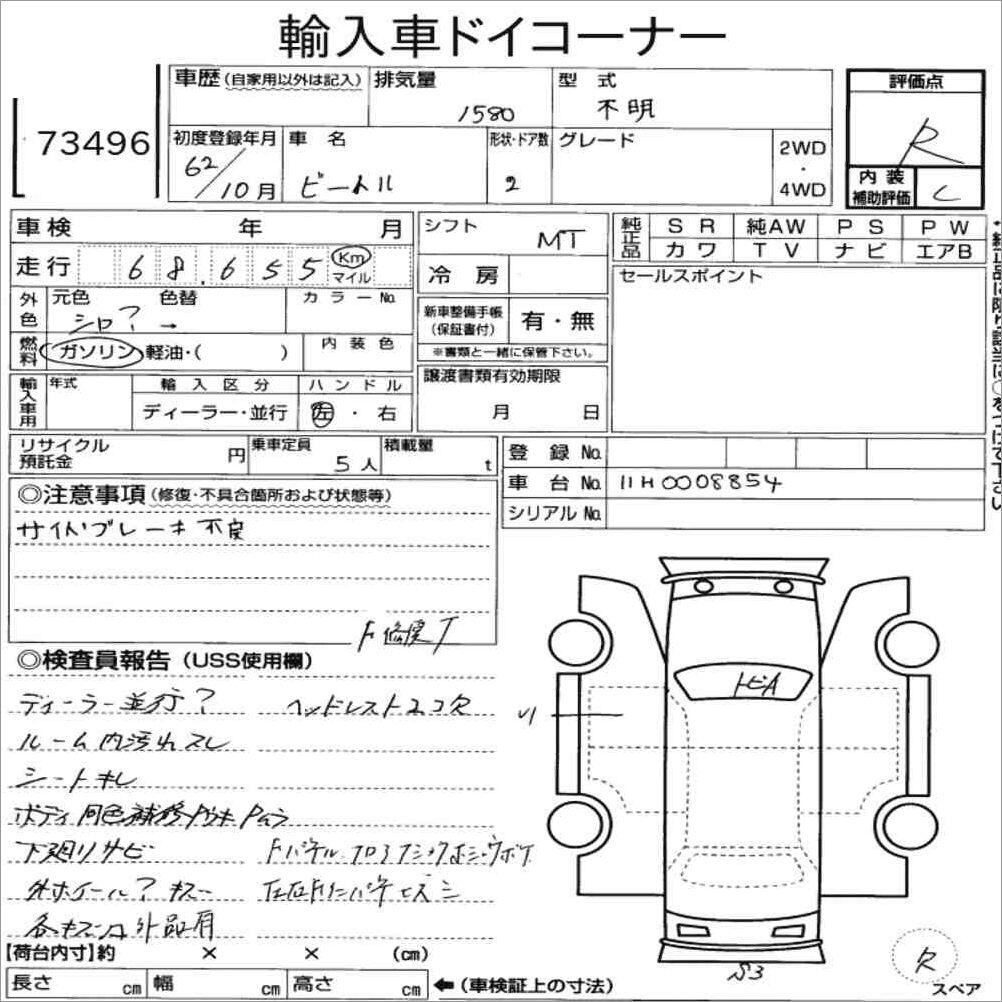 輸入車ドイコーナー
73496
車歴(自家用以外は記入) 排気量 1580 型 式 不明
初度登録年月 62/10月 車 名 ビートル 形状・ドア数 2 グレード 2WD・4WD
評価点 R
内装補助評価 C
車検 年 月
走行 68.655 Km マイル
シフト MT
冷房
純正品 SR 純AW PS PW
カワ TV ナビ エアB
セールスポイント
外色 元色 シロ? 色替 → カラーNo.
燃料 ガソリン 軽油・( ) 内装色
新車整備手帳(保証書付) 有・無
※書類と一緒に保管下さい。
輸入車用 年式 輸入区分 ディーラー・並行 ハンドル 左・右
譲渡書類有効期限 月 日
リサイクル預託金 円 乗車定員 5人 積載量 t
登録No.
車台No. 11H0008854
シリアルNo.
◎注意事項(修復・不具合箇所および状態等)
サイドブレーキ不良
F修復
◎検査員報告(USS使用欄)
ディーラー並行? ヘッドレスト2コ欠
ルーム内汚れスレ
シートキレ
ボディ同色補修
下廻りサビ
外ホイール? キズ
トビA
S3
R
スペア
【荷台内寸】約 × × (cm)
長さ cm 幅 cm 高さ cm ←(車検証上の寸法)